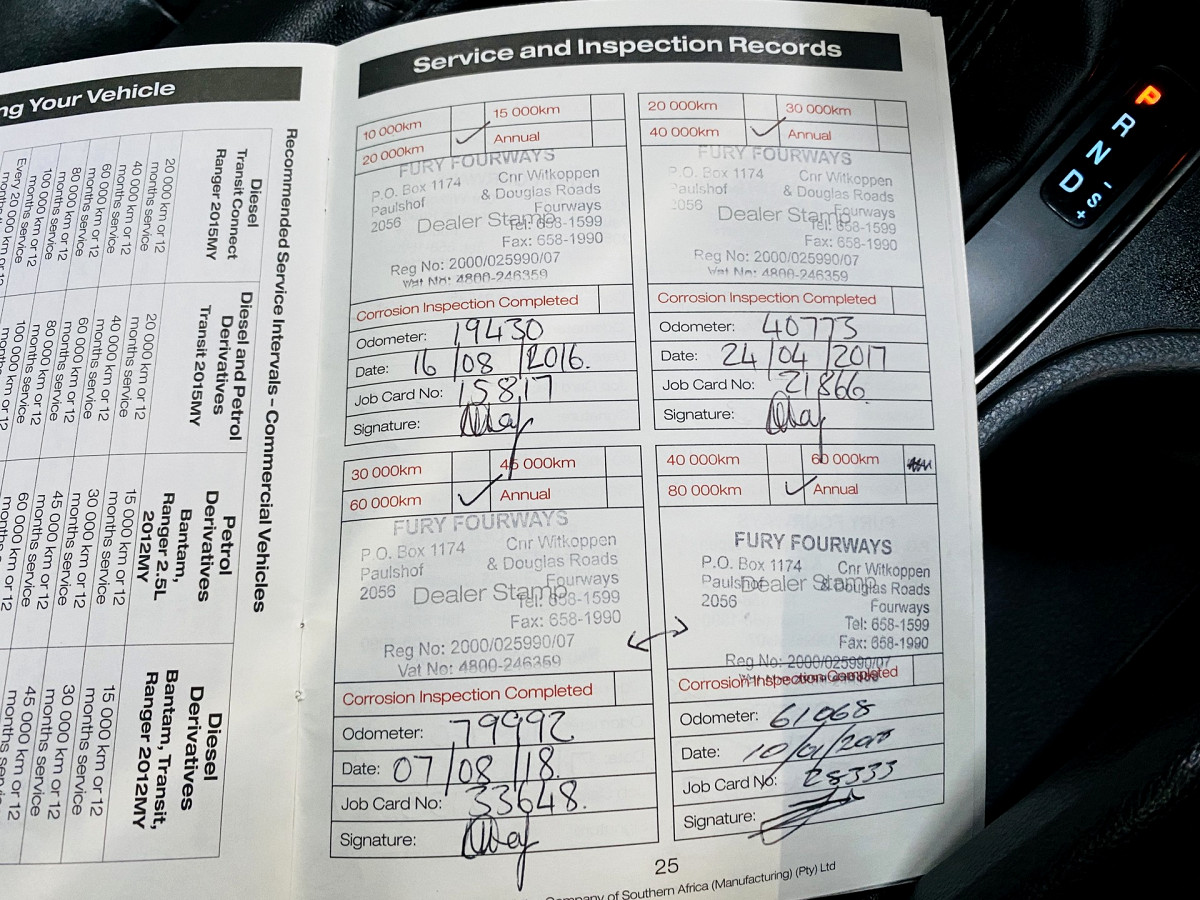 Service and Inspection Records
10 000km
15 000km
20 000km
Annual
FURY FOURWAYS
P.O. Box 1174 Cnr Witkoppen
Paulshof & Douglas Roads
2056 Fourways
Dealer Stamp
Tel: 658-1599
Fax: 658-1990
Reg No: 2000/025990/07
Vat No: 4800-246359
Corrosion Inspection Completed
Odometer: 19430
Date: 16/08/2016.
Job Card No: 15817
Signature:
20 000km
30 000km
40 000km
Annual
FURY FOURWAYS
P.O. Box 1174 Cnr Witkoppen
Paulshof & Douglas Roads
2056 Fourways
Dealer Stamp
Tel: 658-1599
Fax: 658-1990
Reg No: 2000/025990/07
Vat No: 4800-246359
Corrosion Inspection Completed
Odometer: 40773
Date: 24/04/2017
Job Card No: 21866
Signature:
30 000km
45 000km
60 000km
Annual
FURY FOURWAYS
P.O. Box 1174 Cnr Witkoppen
Paulshof & Douglas Roads
2056 Fourways
Dealer Stamp
Tel: 658-1599
Fax: 658-1990
Reg No: 2000/025990/07
Vat No: 4800-246359
Corrosion Inspection Completed
Odometer: 79992
Date: 07/08/18.
Job Card No: 33648.
Signature:
40 000km
60 000km
80 000km
Annual
FURY FOURWAYS
P.O. Box 1174 Cnr Witkoppen
Paulshof & Douglas Roads
2056 Fourways
Dealer Stamp
Tel: 658-1599
Fax: 658-1990
Reg No: 2000/025990/07
Corrosion Inspection Completed
Odometer: 61068
Date:
Job Card No: 28333
Signature:
25
Company of Southern Africa (Manufacturing) (Pty) Ltd
ng Your Vehicle
Recommended Service Intervals - Commercial Vehicles
Diesel
Transit Connect
Ranger 2015MY
20 000 km or 12
months service
40 000 km or 12
months service
60 000 km or 12
months service
80 000 km or 12
months service
100 000 km or 12
months service
Every 20 000 km or 12
Diesel and Petrol
Derivatives
Transit 2015MY
20 000 km or 12
months service
40 000 km or 12
months service
60 000 km or 12
months service
80 000 km or 12
months service
100 000 km or 12
Petrol
Derivatives
Bantam,
Ranger 2.5L
2012MY
15 000 km or 12
months service
30 000 km or 12
months service
45 000 km or 12
months service
60 000 km or 12
Diesel
Derivatives
Bantam, Transit,
Ranger 2012MY
15 000 km or 12
months service
30 000 km or 12
months service
45 000 km or 12
P
R
N
D
-
S
+